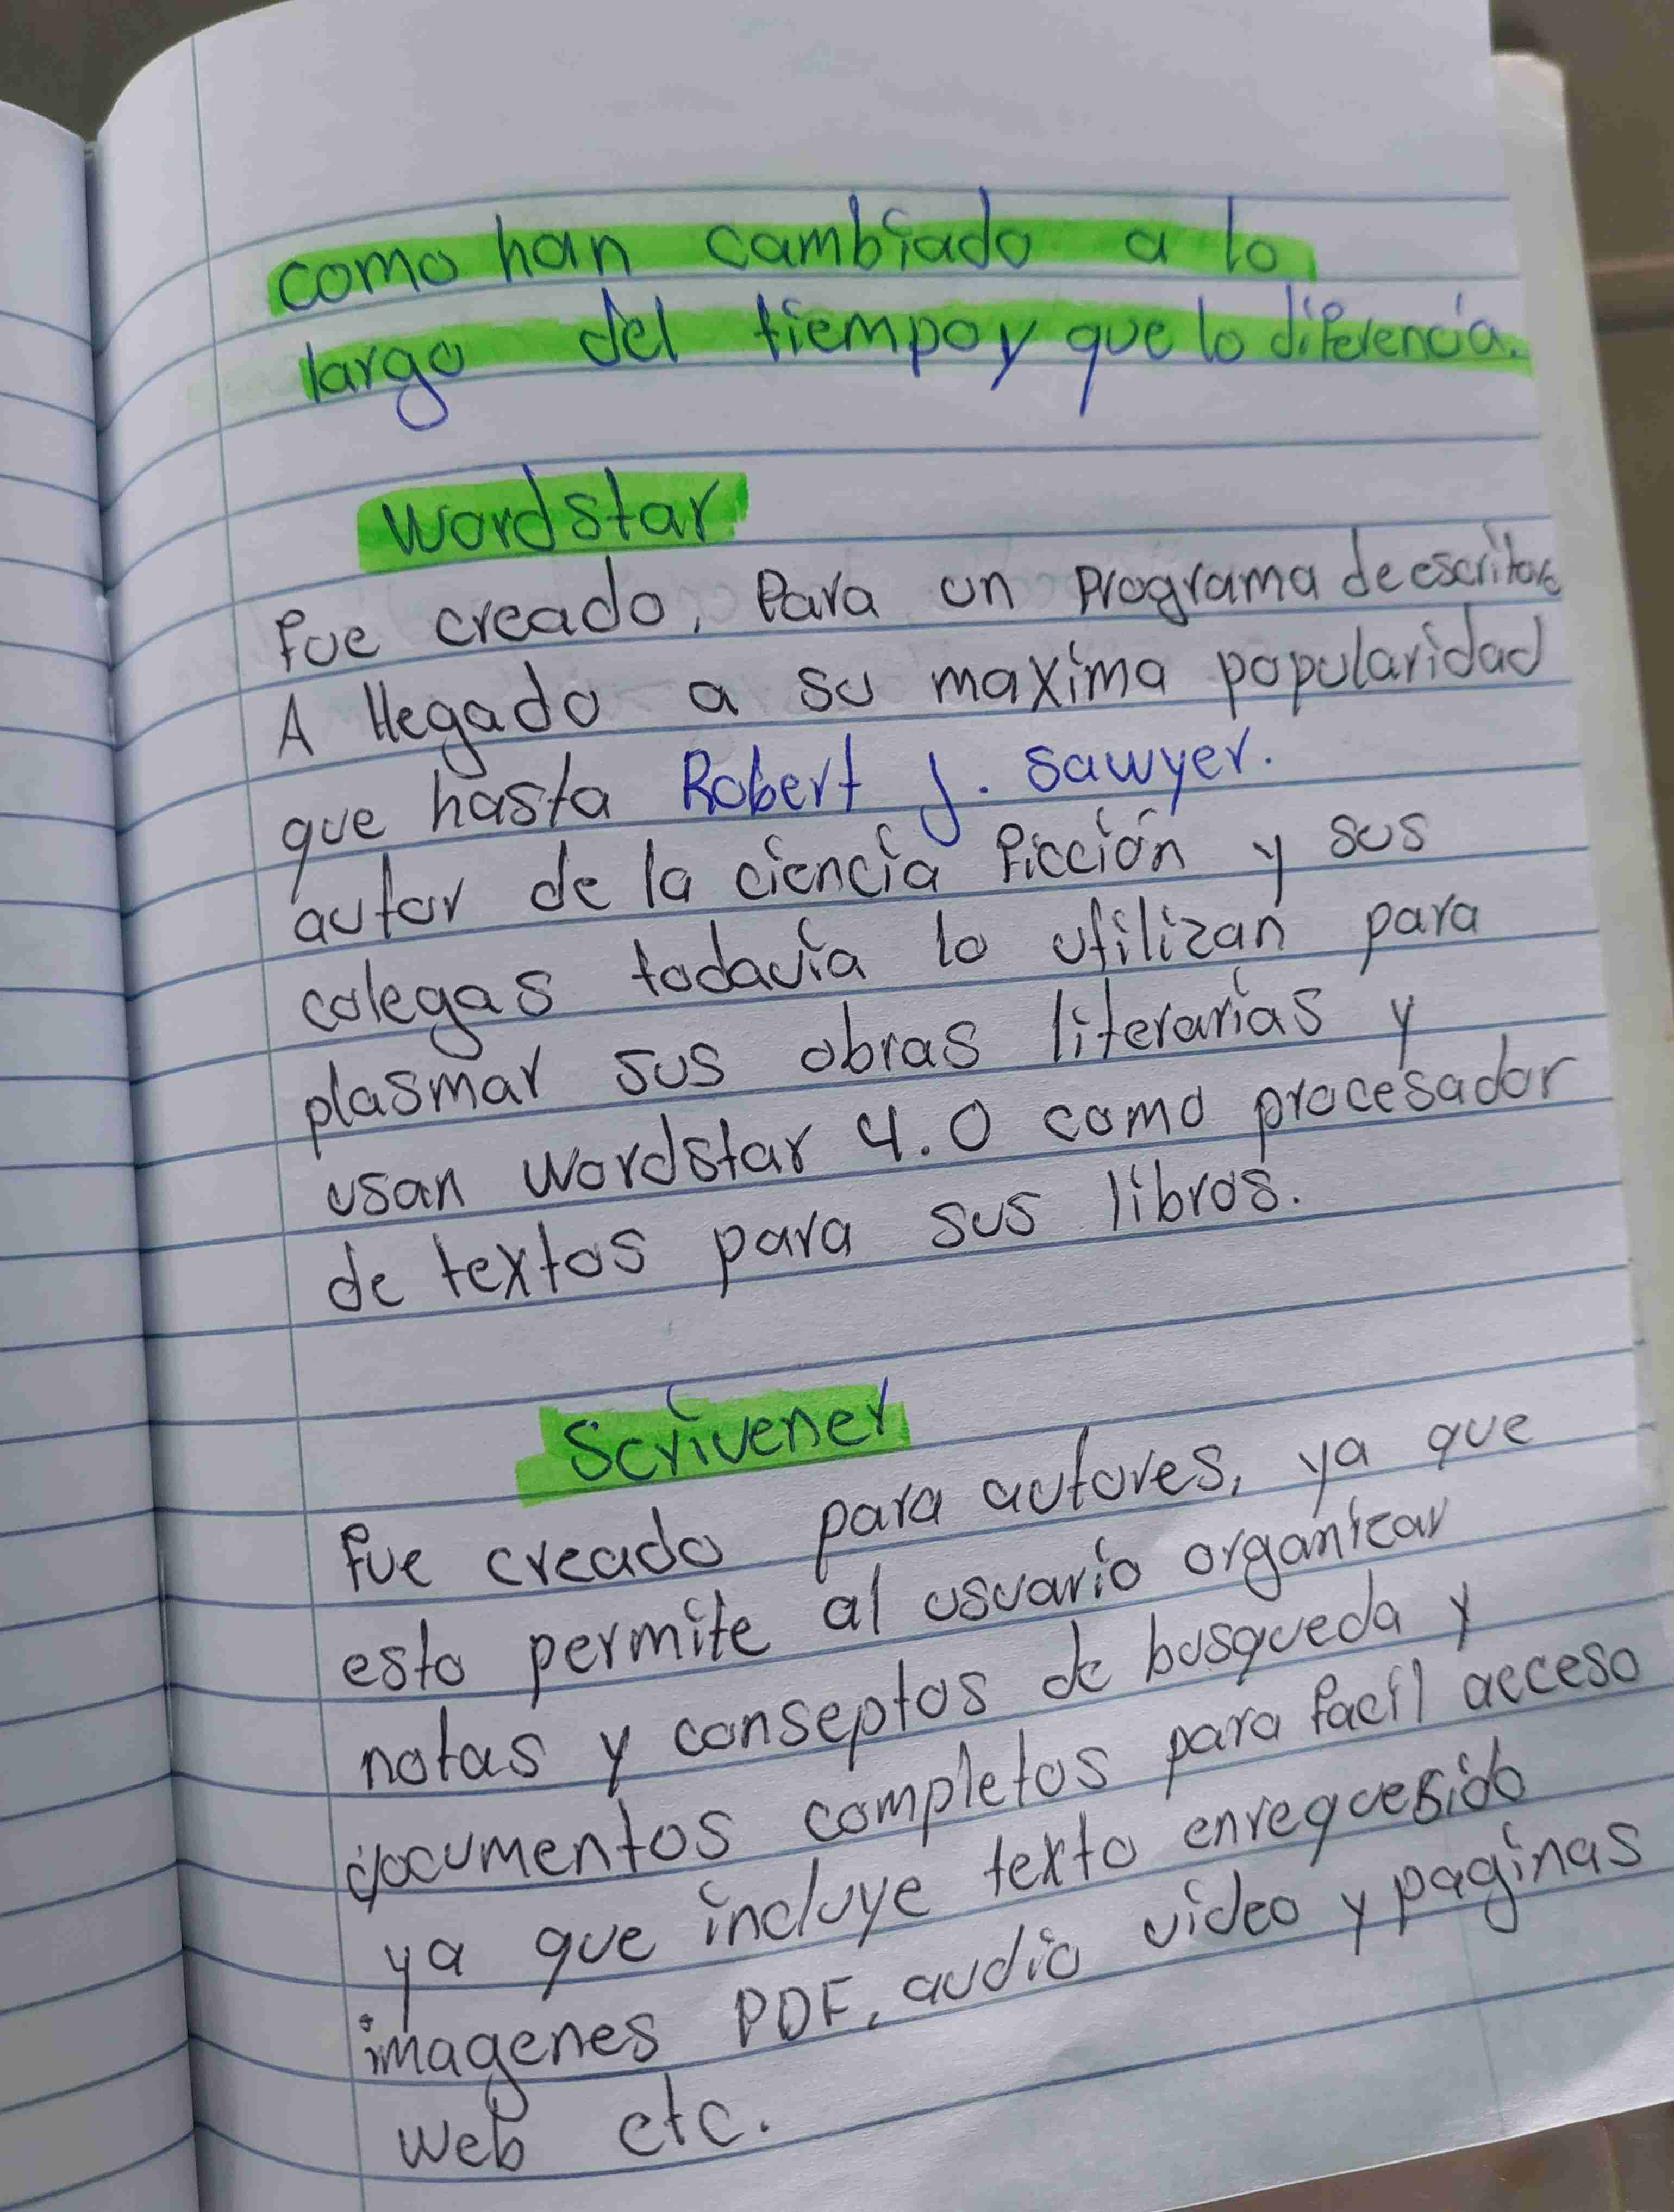 como han cambiado a lo
largo del tiempo y que lo diferencia.
Wordstar
fue creado, Para un programa de escritore
A llegado a su maxima popularidad
que hasta Robert J. Sawyer.
autor de la ciencia ficción y sus
colegas todavía lo utilizan para
plasmar sus obras literarias y
usan wordstar 4.0 como procesador
de textos para sus libros.
Scrivener
fue creado para autores, ya que
esto permite al usuario organizar
notas y conseptos de busqueda y
documentos completos para facil acceso
ya que incluye texto enrequesido
imagenes PDF, audio video y paginas
web etc.